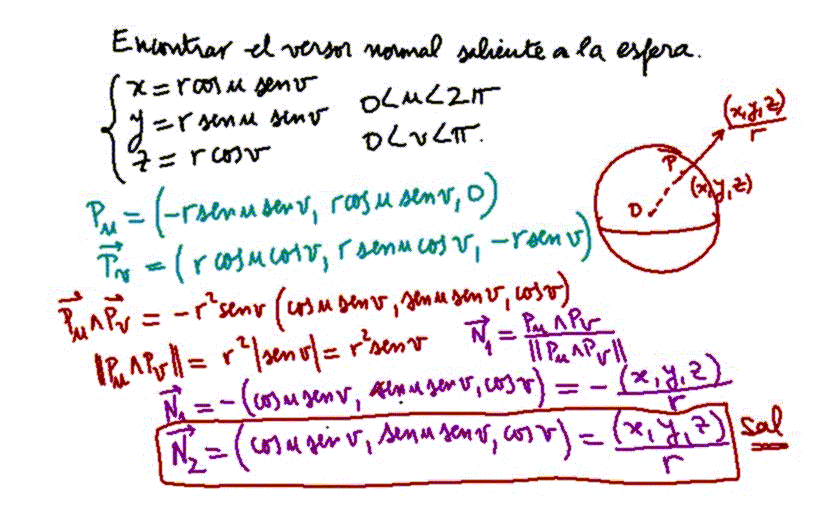 Encontrar el versor normal saliente a la esfera.
{ x = r cos u sen v
y = r sen u sen v 0<u<2π
z = r cos v 0<v<π.
(x,y,z)/r
P
(x,y,z)
O
P_u = (-r sen u sen v, r cos u sen v, 0)
P⃗_v = (r cos u cos v, r sen u cos v, -r sen v)
P⃗_u ∧ P⃗_v = -r² sen v (cos u sen v, sen u sen v, cos v)
||P_u ∧ P_v|| = r²|sen v| = r² sen v N⃗₁ = P_u ∧ P_v / ||P_u ∧ P_v||
N⃗₁ = -(cos u sen v, sen u sen v, cos v) = - (x,y,z)/r
N⃗₂ = (cos u sen v, sen u sen v, cos v) = (x,y,z)/r sal